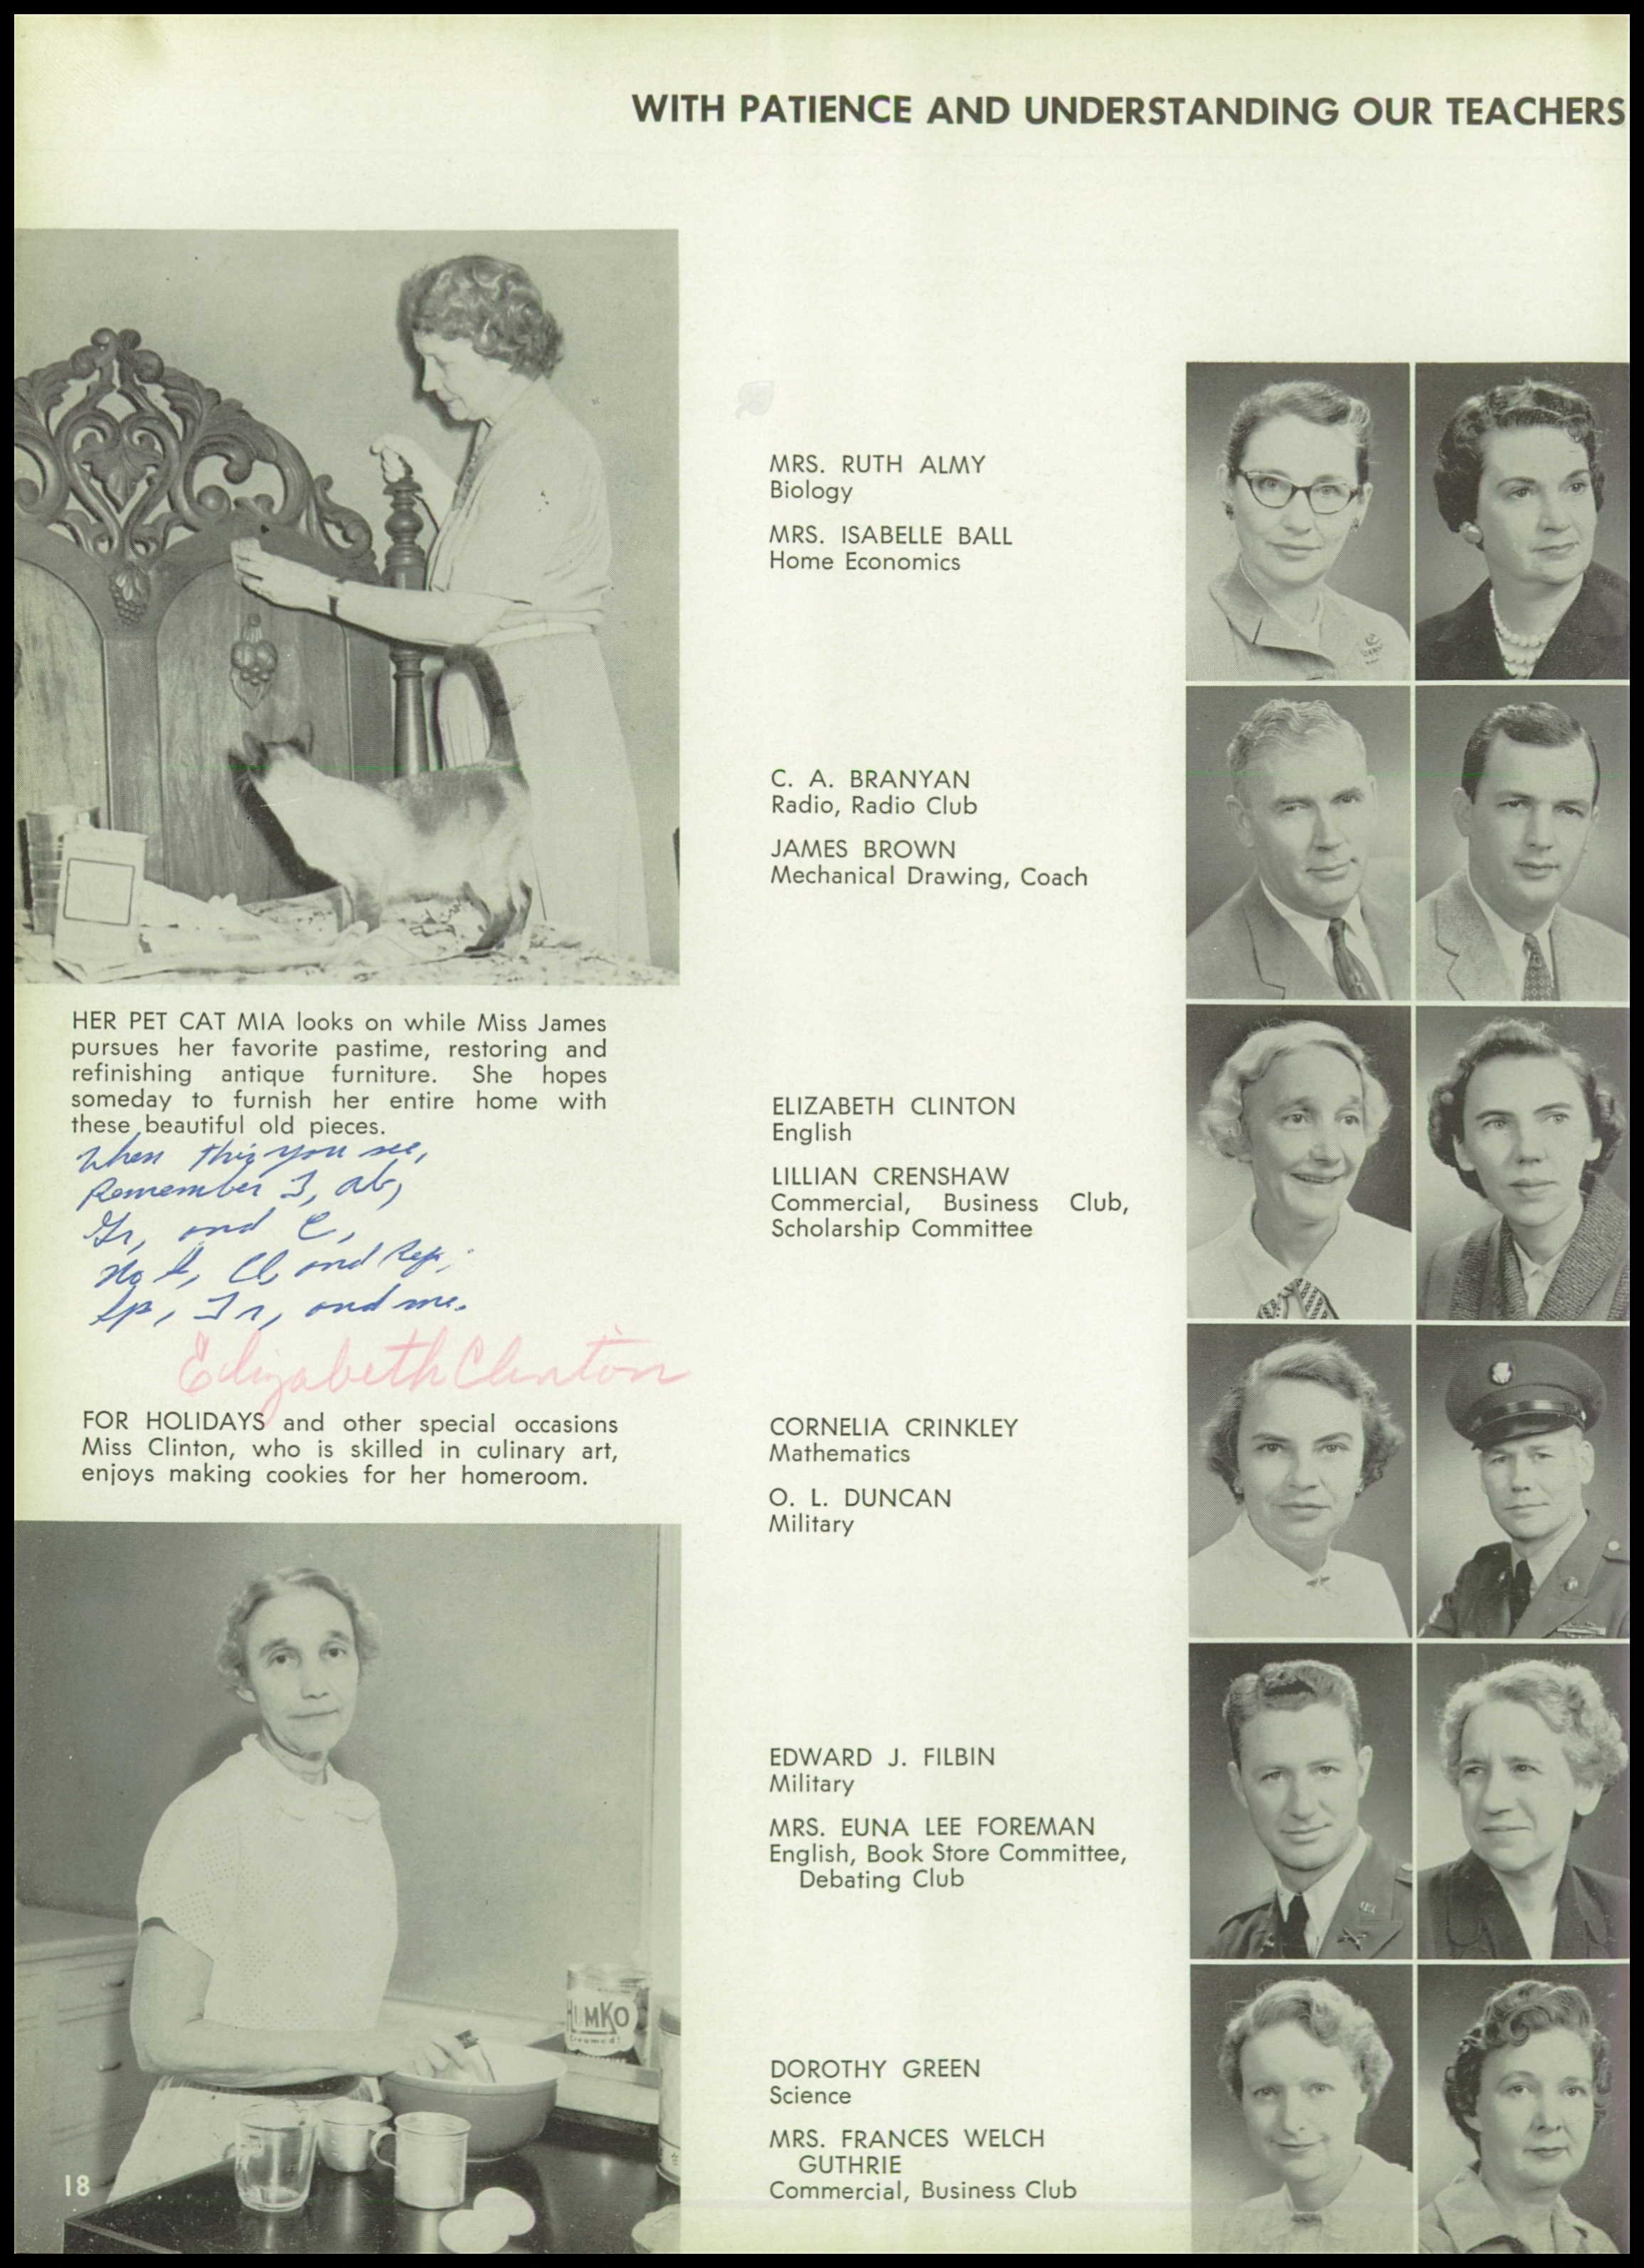 WITH PATIENCE AND UNDERSTANDING OUR TEACHERS
HER PET CAT MIA looks on while Miss James
pursues her favorite pastime, restoring and
refinishing antique furniture. She hopes
someday to furnish her entire home with
these beautiful old pieces.
When this you see,
Remember I, ab,
Gr, and C,
No A, Cl, and Rep,
Sp, Tr, and me.
Elizabeth Clinton
FOR HOLIDAYS and other special occasions
Miss Clinton, who is skilled in culinary art,
enjoys making cookies for her homeroom.
HUMKO
Creamed!
18
MRS. RUTH ALMY
Biology
MRS. ISABELLE BALL
Home Economics
C. A. BRANYAN
Radio, Radio Club
JAMES BROWN
Mechanical Drawing, Coach
ELIZABETH CLINTON
English
LILLIAN CRENSHAW
Commercial, Business Club,
Scholarship Committee
CORNELIA CRINKLEY
Mathematics
O. L. DUNCAN
Military
EDWARD J. FILBIN
Military
MRS. EUNA LEE FOREMAN
English, Book Store Committee,
Debating Club
DOROTHY GREEN
Science
MRS. FRANCES WELCH
GUTHRIE
Commercial, Business Club